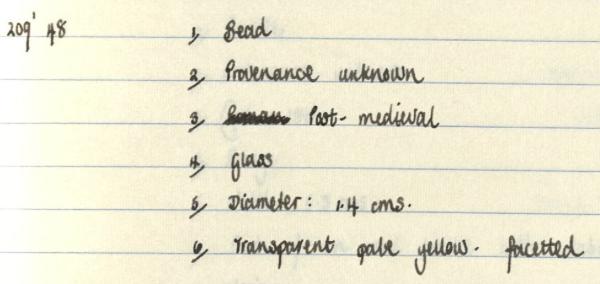 209' 48 1, Bead
2, Provenance unknown
3, Post- medieval
4, Glass
5, Diameter: 1.4 cms.
6, Transparent pale yellow. facetted